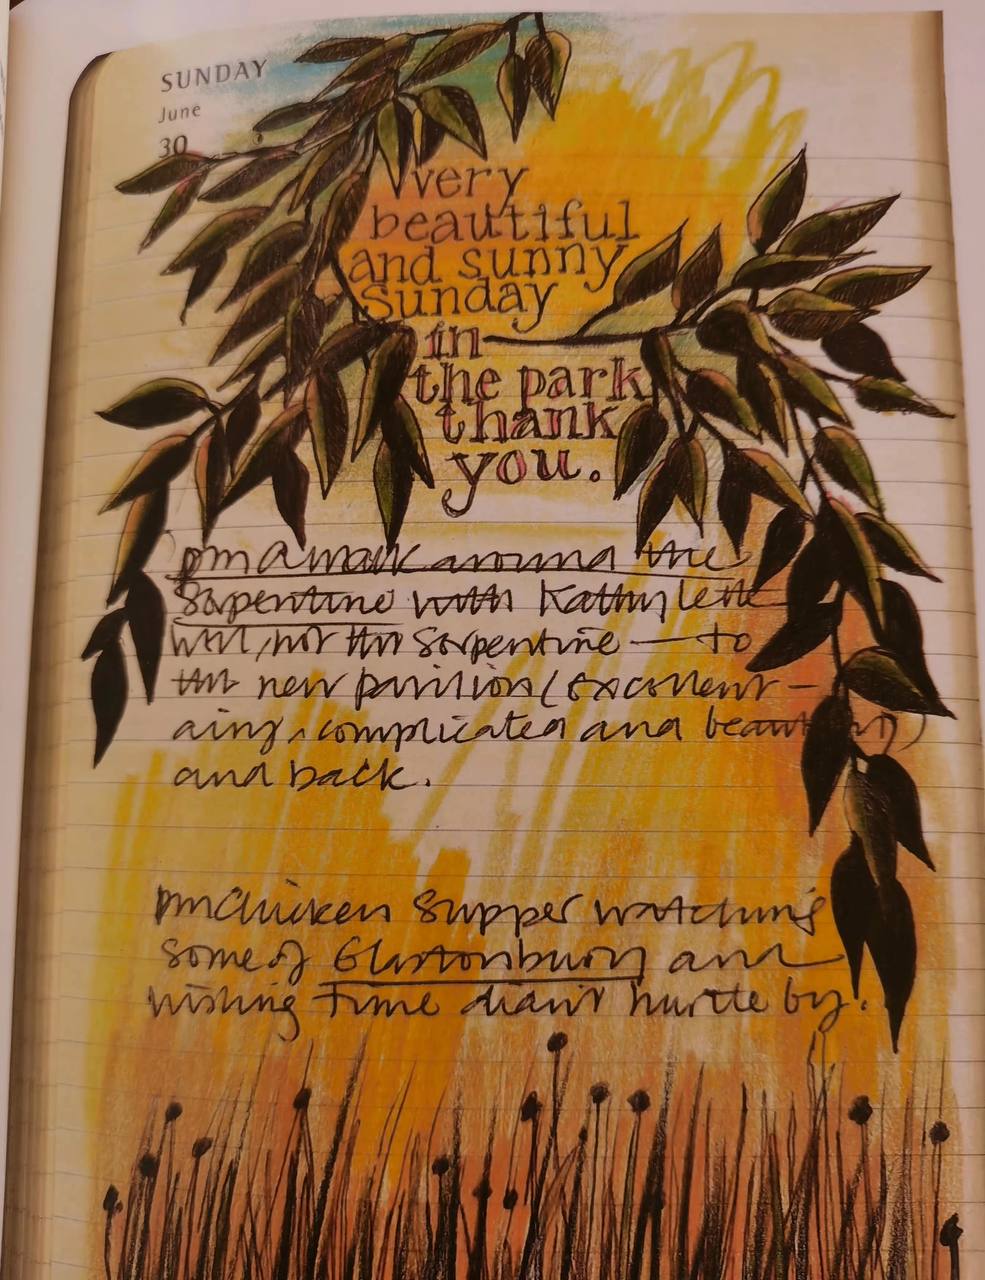 SUNDAY
June
30
very
beautiful
and sunny
Sunday
in
the park
thank
you.
pm A walk around the
Serpentine with Kathy Lette
well, not the Serpentine — to
the new pavilion (excellent –
airy, complicated and beautiful)
and back.
pm Chicken Supper watching
some of Glastonbury and
wishing time didn't hurtle by.